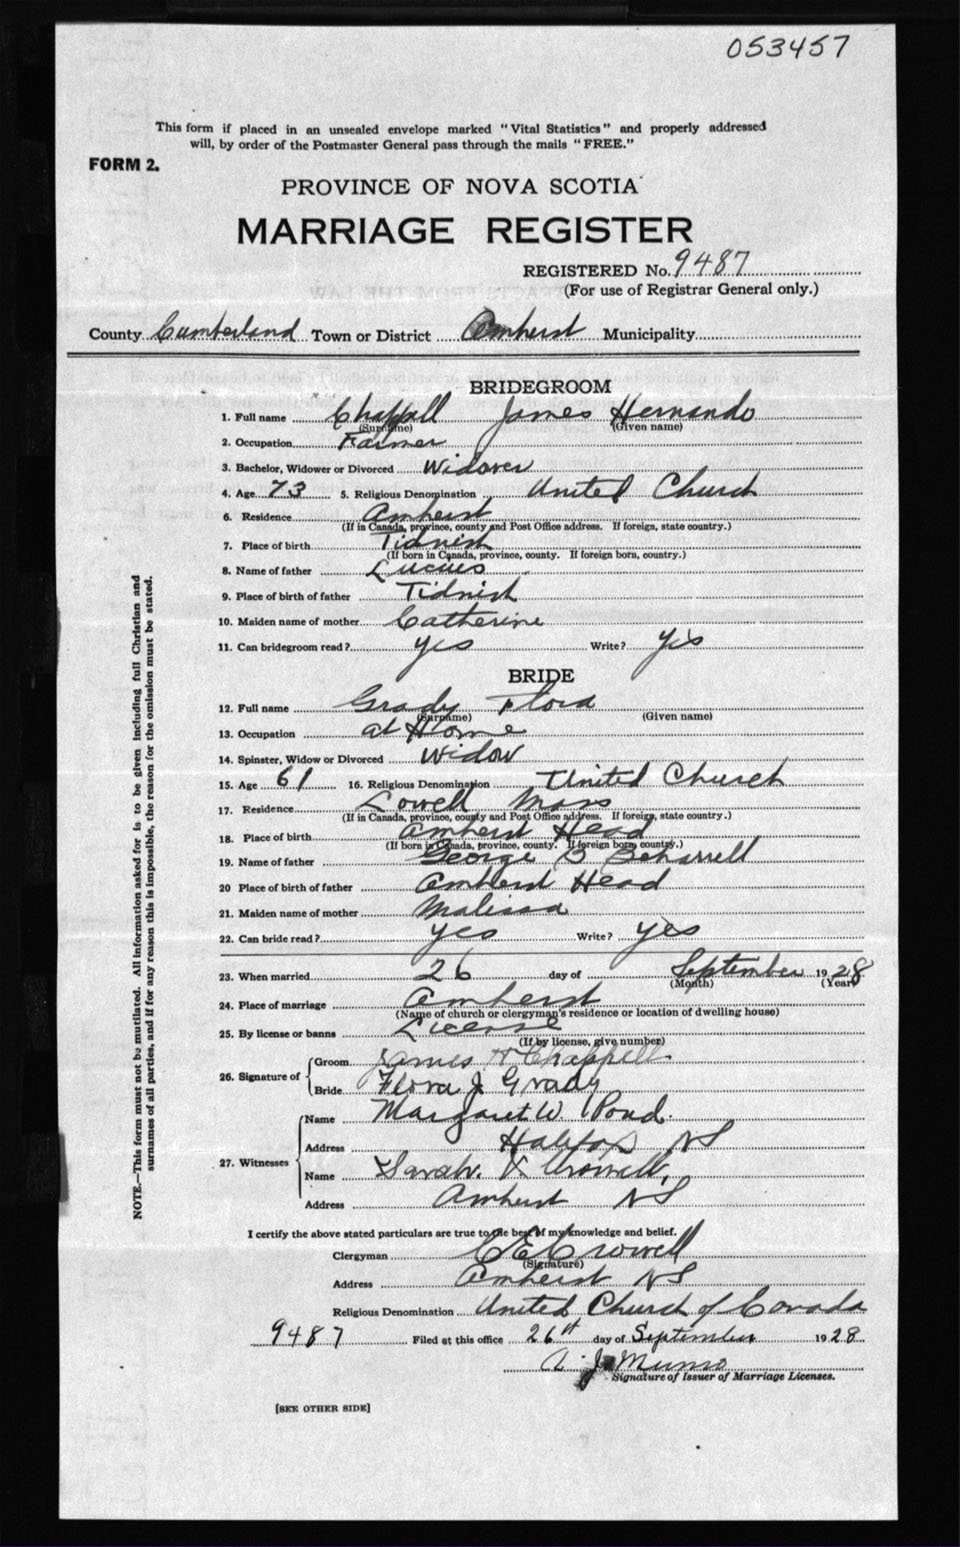 053457
This form if placed in an unsealed envelope marked "Vital Statistics" and properly addressed
will, by order of the Postmaster General pass through the mails "FREE."
FORM 2.
PROVINCE OF NOVA SCOTIA
MARRIAGE REGISTER
REGISTERED No. 9487
(For use of Registrar General only.)
County Cumberland Town or District Amherst Municipality
BRIDEGROOM
1. Full name Chappell James Hernando
(Surname) (Given name)
2. Occupation Farmer
3. Bachelor, Widower or Divorced Widower
4. Age 73 5. Religious Denomination United Church
6. Residence Amherst
(If in Canada, province, county and Post Office address. If foreign, state country.)
7. Place of birth Tidnish
(If born in Canada, province, county. If foreign born, country.)
8. Name of father Lucius
9. Place of birth of father Tidnish
10. Maiden name of mother Catherine
11. Can bridegroom read? yes Write? yes
BRIDE
12. Full name Grady Flora
(Surname) (Given name)
13. Occupation at Home
14. Spinster, Widow or Divorced Widow
15. Age 61 16. Religious Denomination United Church
17. Residence Lowell Mass
(If in Canada, province, county and Post Office address. If foreign, state country.)
18. Place of birth Amherst Head
(If born in Canada, province, county. If foreign born, country.)
19. Name of father George B Beharrell
20 Place of birth of father Amherst Head
21. Maiden name of mother Malissa
22. Can bride read? yes Write? yes
23. When married 26 day of September 1928
(Month) (Year)
24. Place of marriage Amherst
(Name of church or clergyman's residence or location of dwelling house)
25. By license or banns License
(If by license, give number)
26. Signature of Groom James H Chappell
Bride Flora J Grady
27. Witnesses Name Margaret W. Pond.
Address Halifax NS
Name Sarah. Crowell,
Address Amherst NS
I certify the above stated particulars are true to the best of my knowledge and belief.
Clergyman C E Crowell
(Signature)
Address Amherst NS
Religious Denomination United Church of Canada
9487 Filed at this office 26th day of September 1928
A. J. Munro
Signature of Issuer of Marriage Licenses.
[SEE OTHER SIDE]
NOTE.—This form must not be mutilated. All information asked for is to be given including full Christian and
surnames of all parties, and if for any reason this is impossible, the reason for the omission must be stated.